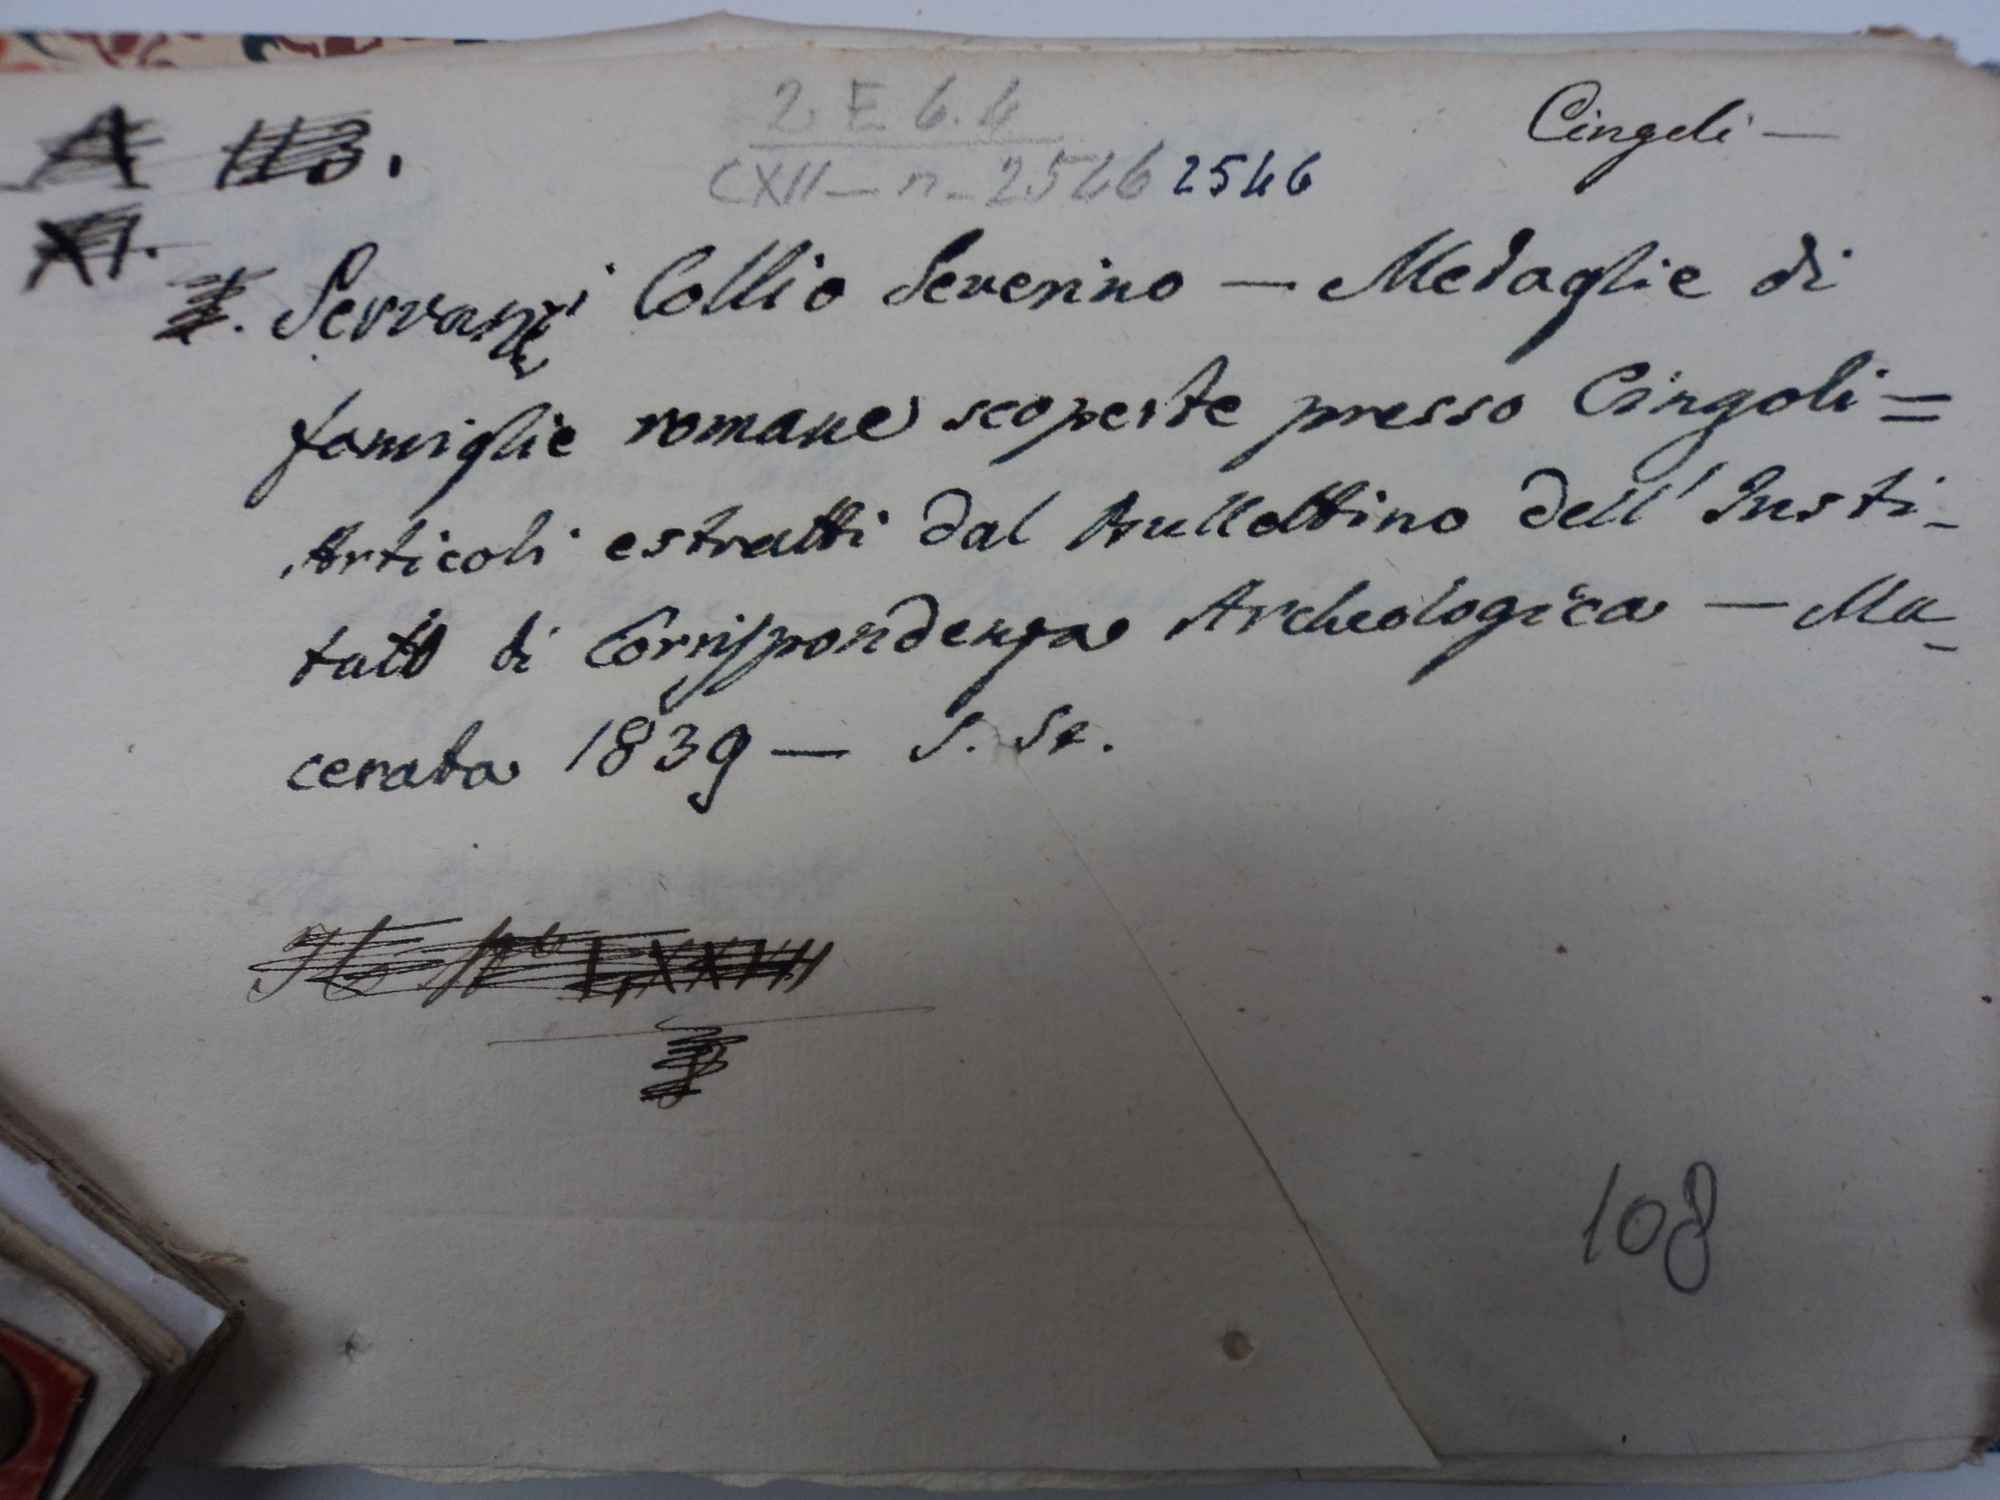 A 113.
2. E. 6. 4
Cingoli —
CXII — n. 2546 2546
XI.
Servanzi Collio Severino — Medaglie di
famiglie romane scoperte presso Cingoli =
Articoli estratti dal Bullettino dell' Insti-
tuto di Corrispondenza Archeologica — Ma-
cerata 1839 — S. St.
108